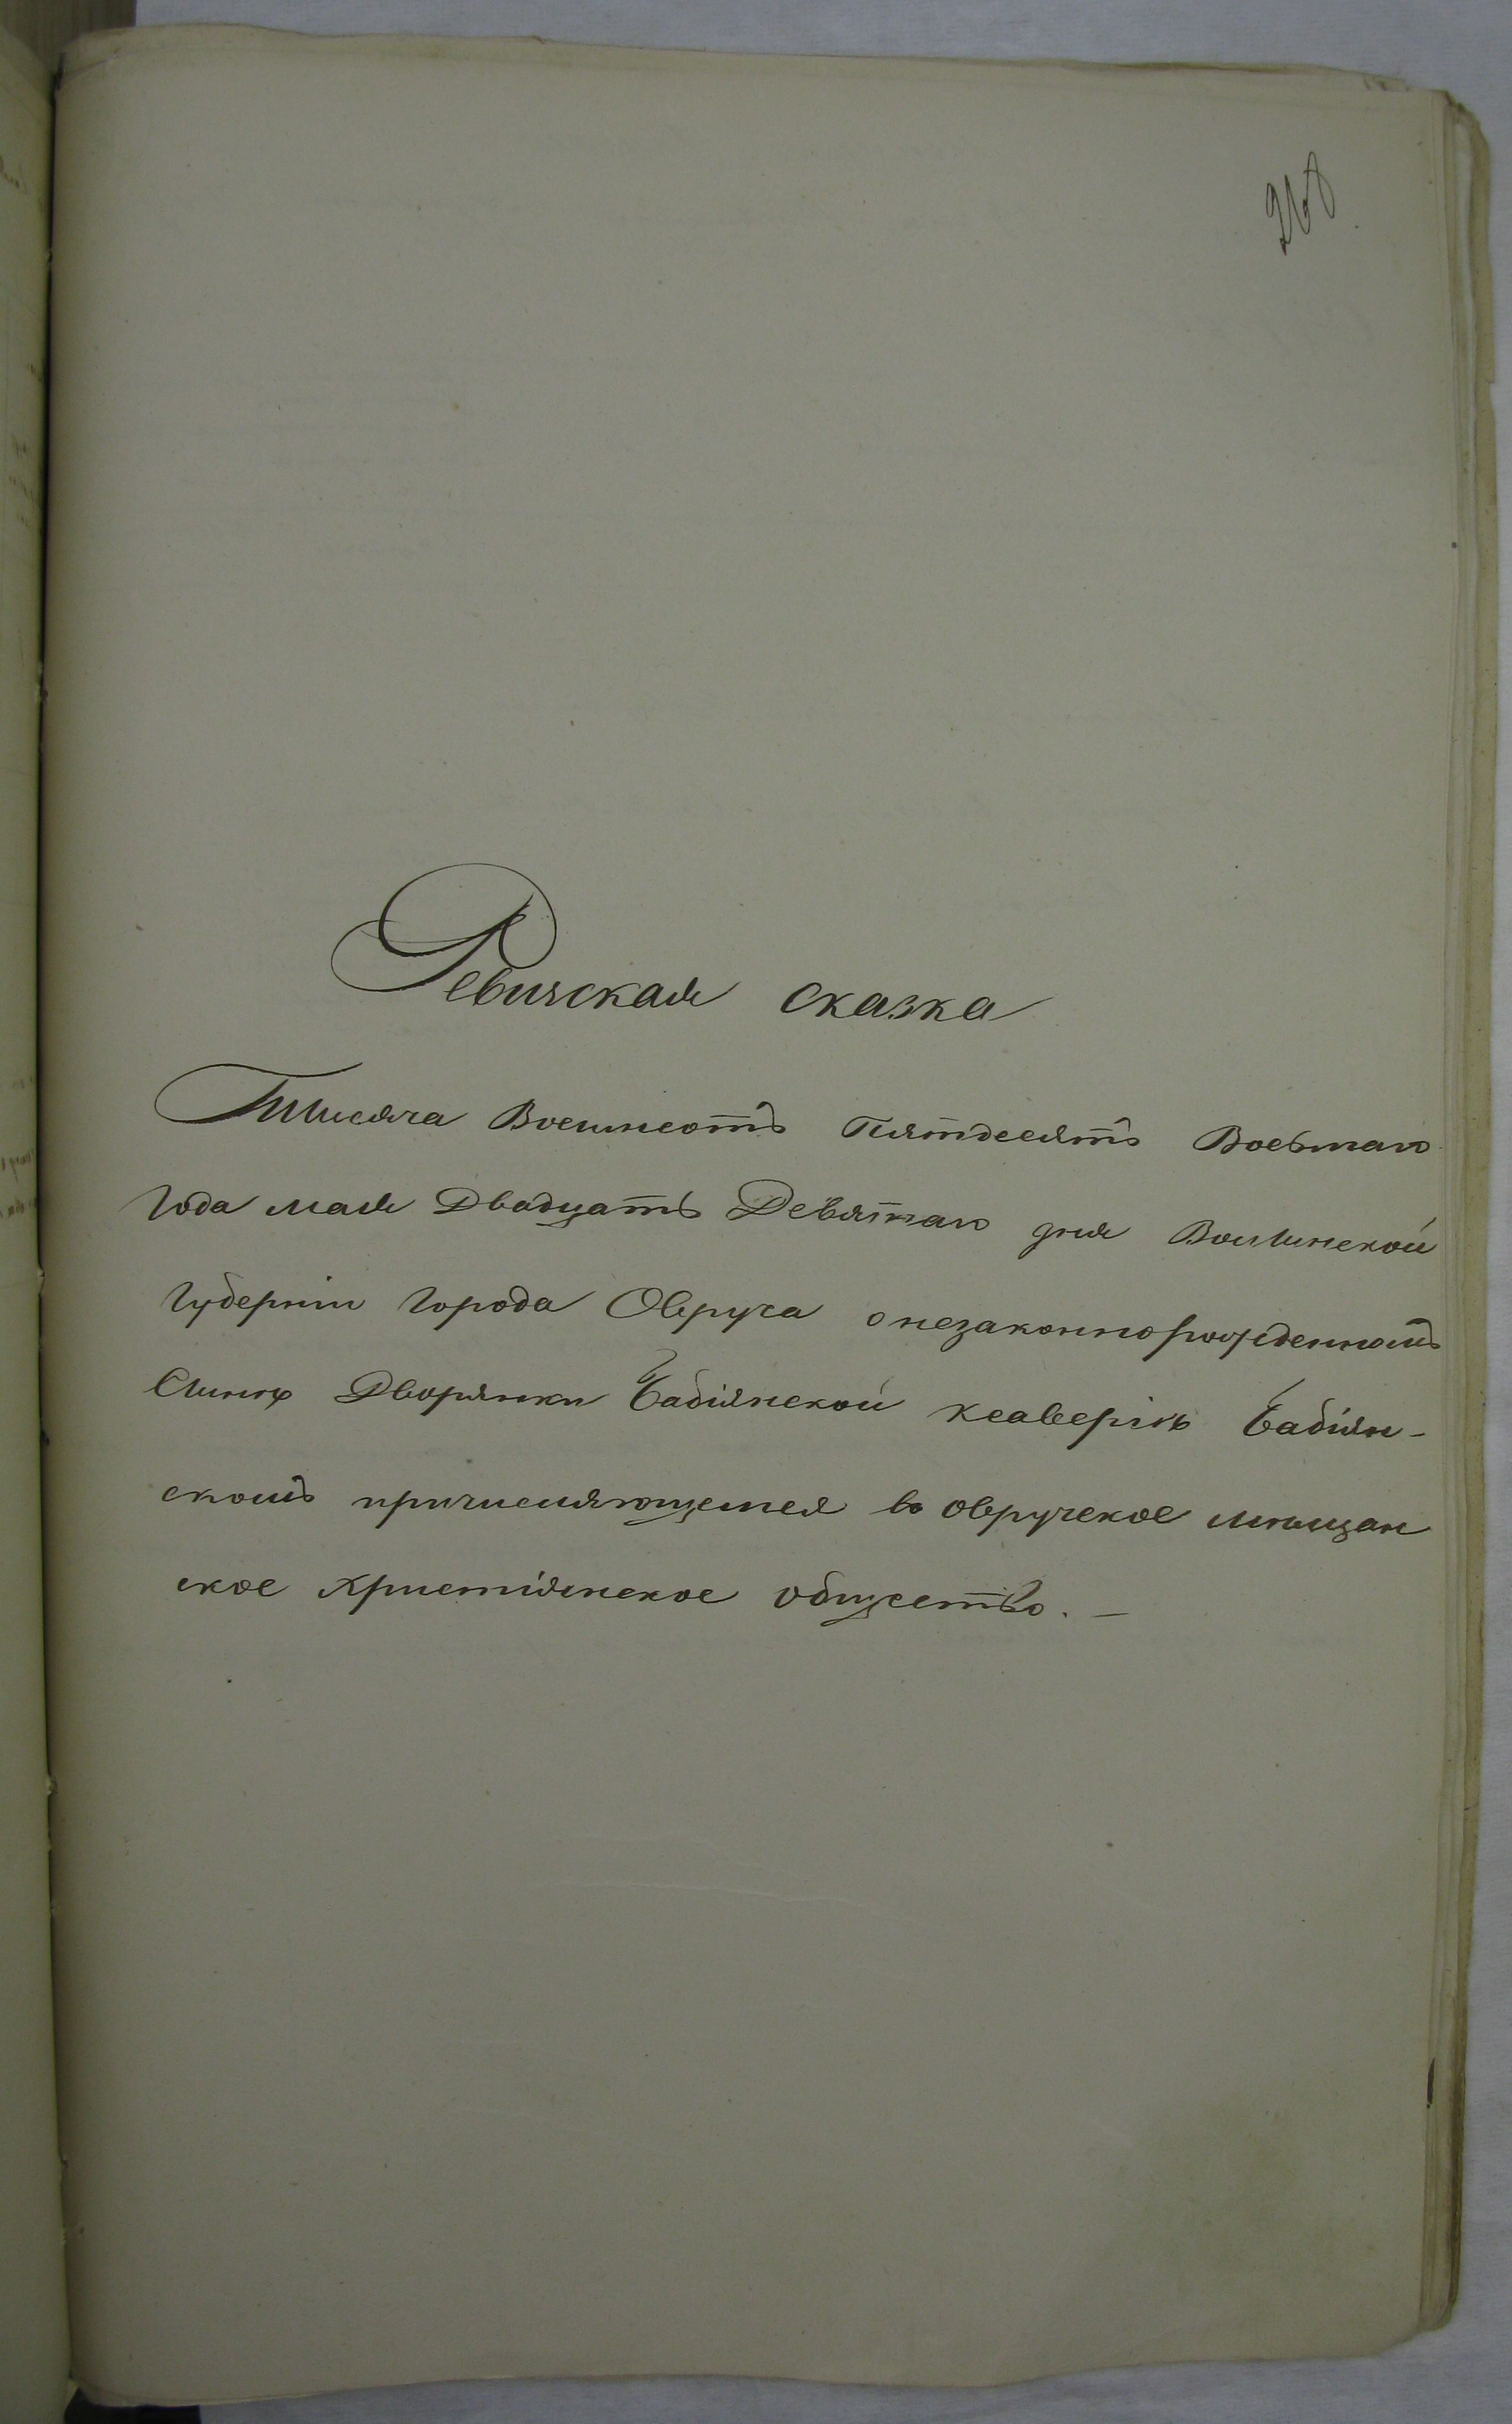 268
Ревизская сказка
Тысяча Восемьсотъ Пятдесятъ Восьмаго
Года мая Двадцать Девятаго дня Волынской
Губерніи Города Овруча о незаконнорожденномъ
Сынѣ Дворянки Бабіянской Ксаверію Бабіян-
скомъ причисляющемся въ овручское мѣщан
ское христіянское общество. —